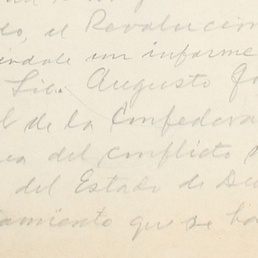 do, el Revolucion
indole un informe
Lic. Augusto
l de la Confedera
ea del conflicto
del Estado de Du
tamiento que se ha